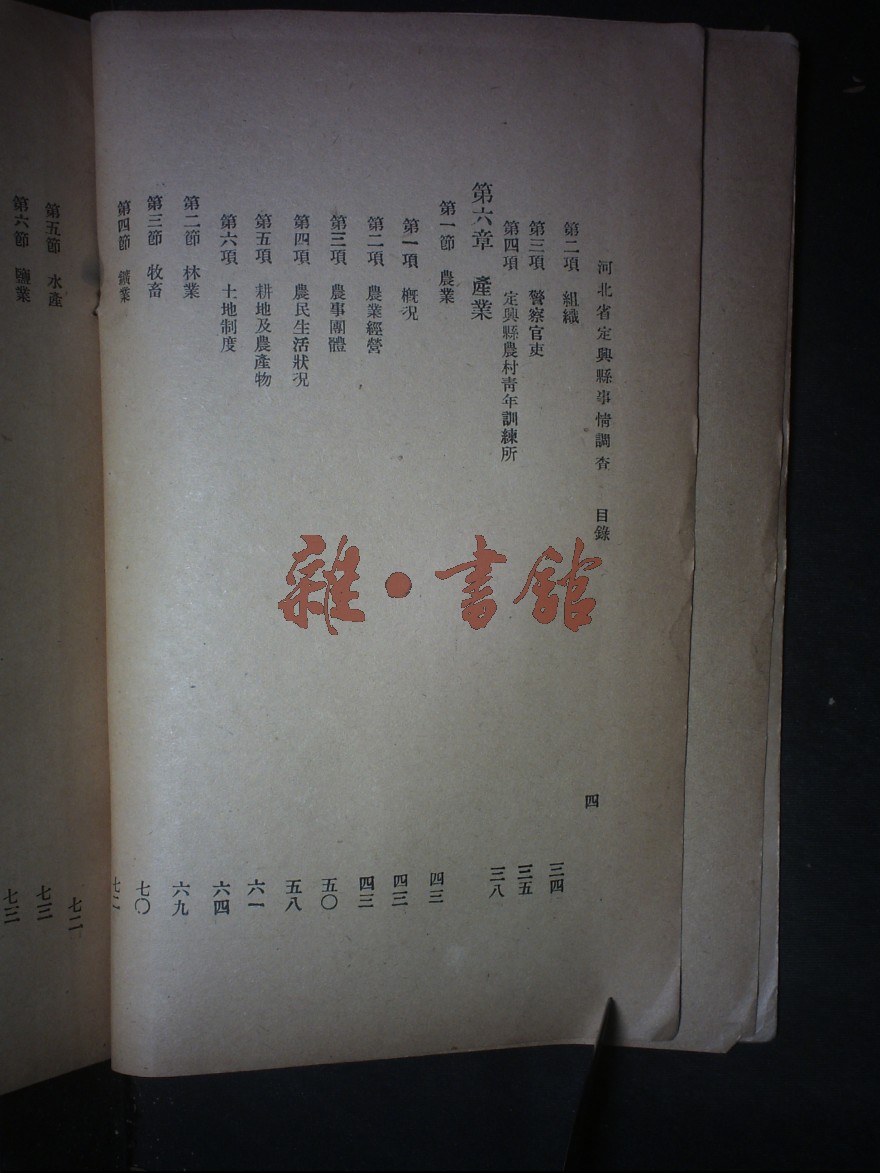 河北省定興縣事情調查 目錄 四
第二項 組織 三四
第三項 警察官吏 三五
第四項 定興縣農村靑年訓練所 三八
第六章 產業
第一節 農業 四三
第一項 概況 四三
第二項 農業經營 四三
第三項 農事團體 五〇
第四項 農民生活狀況 五八
第五項 耕地及農產物 六一
第六項 土地制度 六四
第二節 林業 六九
第三節 牧畜 七〇
第四節 鑛業 七二
七二
第五節 水產 七三
第六節 鹽業 七三
雜·書館